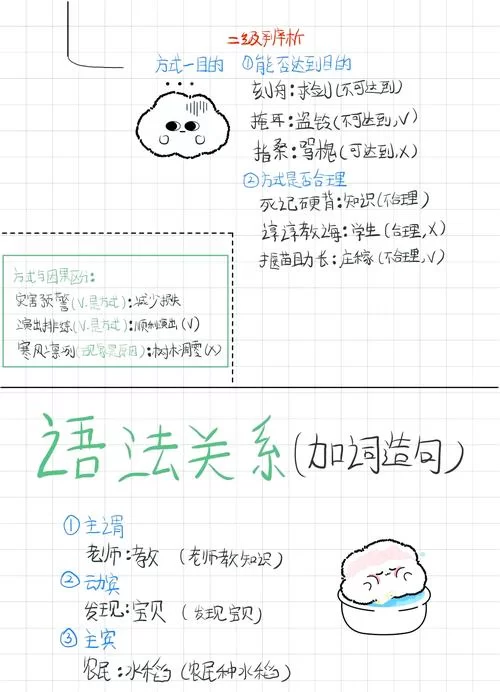 二级辨析
方式一目的 ①能否达到目的
刻舟:求剑(不可达到)
掩耳:盗铃(不可达到,√)
指桑:骂槐(可达到,X)
②方式是否合理
死记硬背:知识(不合理)
谆谆教诲:学生(合理,X)
揠苗助长:庄稼(不合理,√)
方式与因果区分:
灾害预警(V.是方式):减少损失
演出排练(V.是方式):顺利演出(V)
寒风凛冽(现象是原因):树木凋零(X)
语法关系(加词造句)
①主谓
老师:教(老师教知识)
②动宾
发现:宝贝(发现宝贝)
③主宾
农民:水稻(农民种水稻)